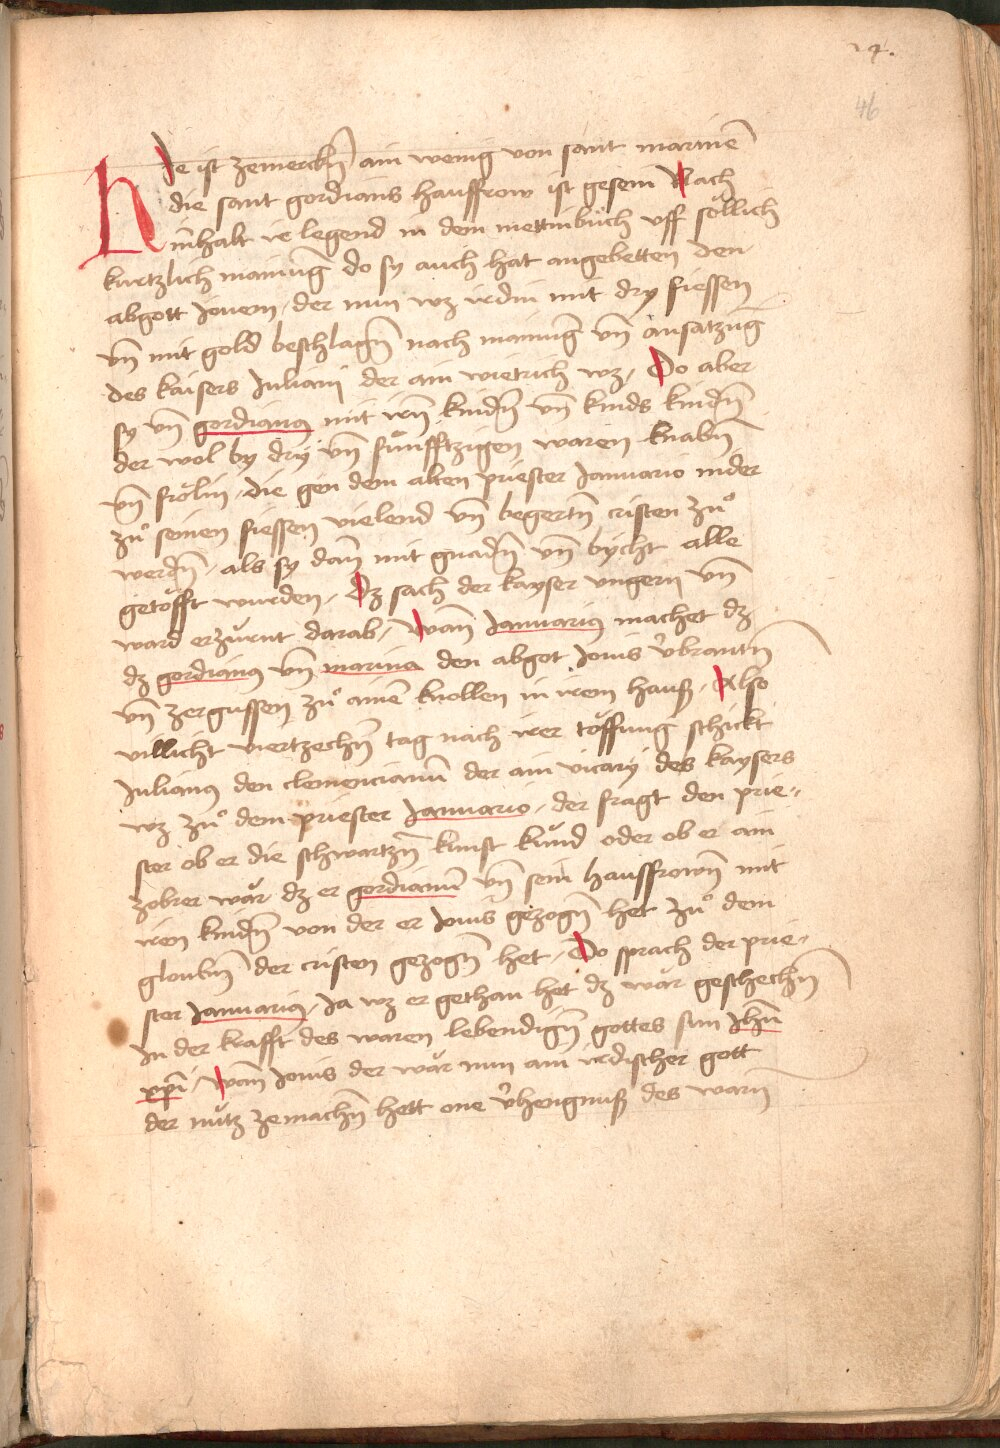 24.
46
HJe ist zemerckn̄ ain wenig von sant marinē
die sant gordians hauſfrow ist gesein Nach
inhalt ir legend in dem mettinbůch vff soͤllich
kurtzlich mainunḡ do sy auch hat angebetten den
abgott Jouem / der nun wz irdin mit dry fiessen
vn̄ mit gold beschlagn̄ nach mainunḡ vn̄ ansatzung
des kaisers Juliani der ain wietrich wz / Do aber
sy vn̄ gordianus mit irn̄ kindn̄ vn̄ kinds kindn̄
der wol by dry vn̄ fünfftzigen waren knabn̄
vn̄ froͤlin / die gen dem alten priester Januario nider
zů seinen fiessen vielend vn̄ begertn̄ cristen zů
werdn̄ / als sy dan̄ mit gnadn̄ vn̄ bycht alle
getoͤfft wurden / Dz sach der kayser vngern vn̄
ward erzürnt darab / Wan̄ Januarius machet dz
dz gordianus vn̄ marina den abgot Jouis v̄brantn̄
vn̄ zergussen zů ainē knollen in irem hauß / Also
villicht viertzechn̄ tag nach irer toͤffung schickt
Julianus den clemencianū der ain vicary des kaysers
wz zů dem priester Januario / der fragt den prie-
ster ob er die schwartzn̄ kunst kuͤnd oder ob er ain
zobrer waͤr dz er gordianū vn̄ sein hauſfrown̄ mit
iren kindn̄ von der er Jouis gezogn̄ het zů dem
gloubn̄ der cristen gezogn̄ het / Do sprach der prie-
ster Januarius / Ja wz er gethan het dz waͤr geschechn̄
In der krafft des waren lebendign̄ gottes sun Jhū
xp̄i / Wan̄ Jouis der waͤr nun ain irdischer gott
der nütz zemachn̄ hett one v̄hengnuß des warn